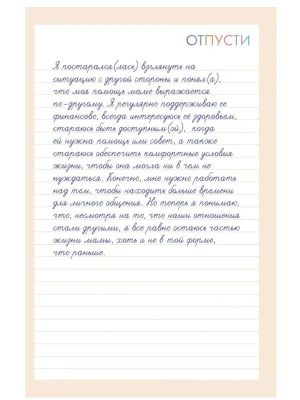 ОТПУСТИ
Я постарался(лась) взглянуть на
ситуацию с другой стороны и понял(а),
что моя помощь маме выражается
по-другому. Я регулярно поддерживаю её
финансово, всегда интересуюсь её здоровьем,
стараюсь быть доступным(ой), когда
ей нужна помощь или совет, а также
стараюсь обеспечить комфортные условия
жизни, чтобы она могла ни в чем не
нуждаться. Конечно, мне нужно работать
над тем, чтобы находить больше времени
для личного общения. Но теперь я понимаю,
что, несмотря на то, что наши отношения
стали другими, я все равно остаюсь частью
жизни мамы, хоть и не в той форме,
что раньше.